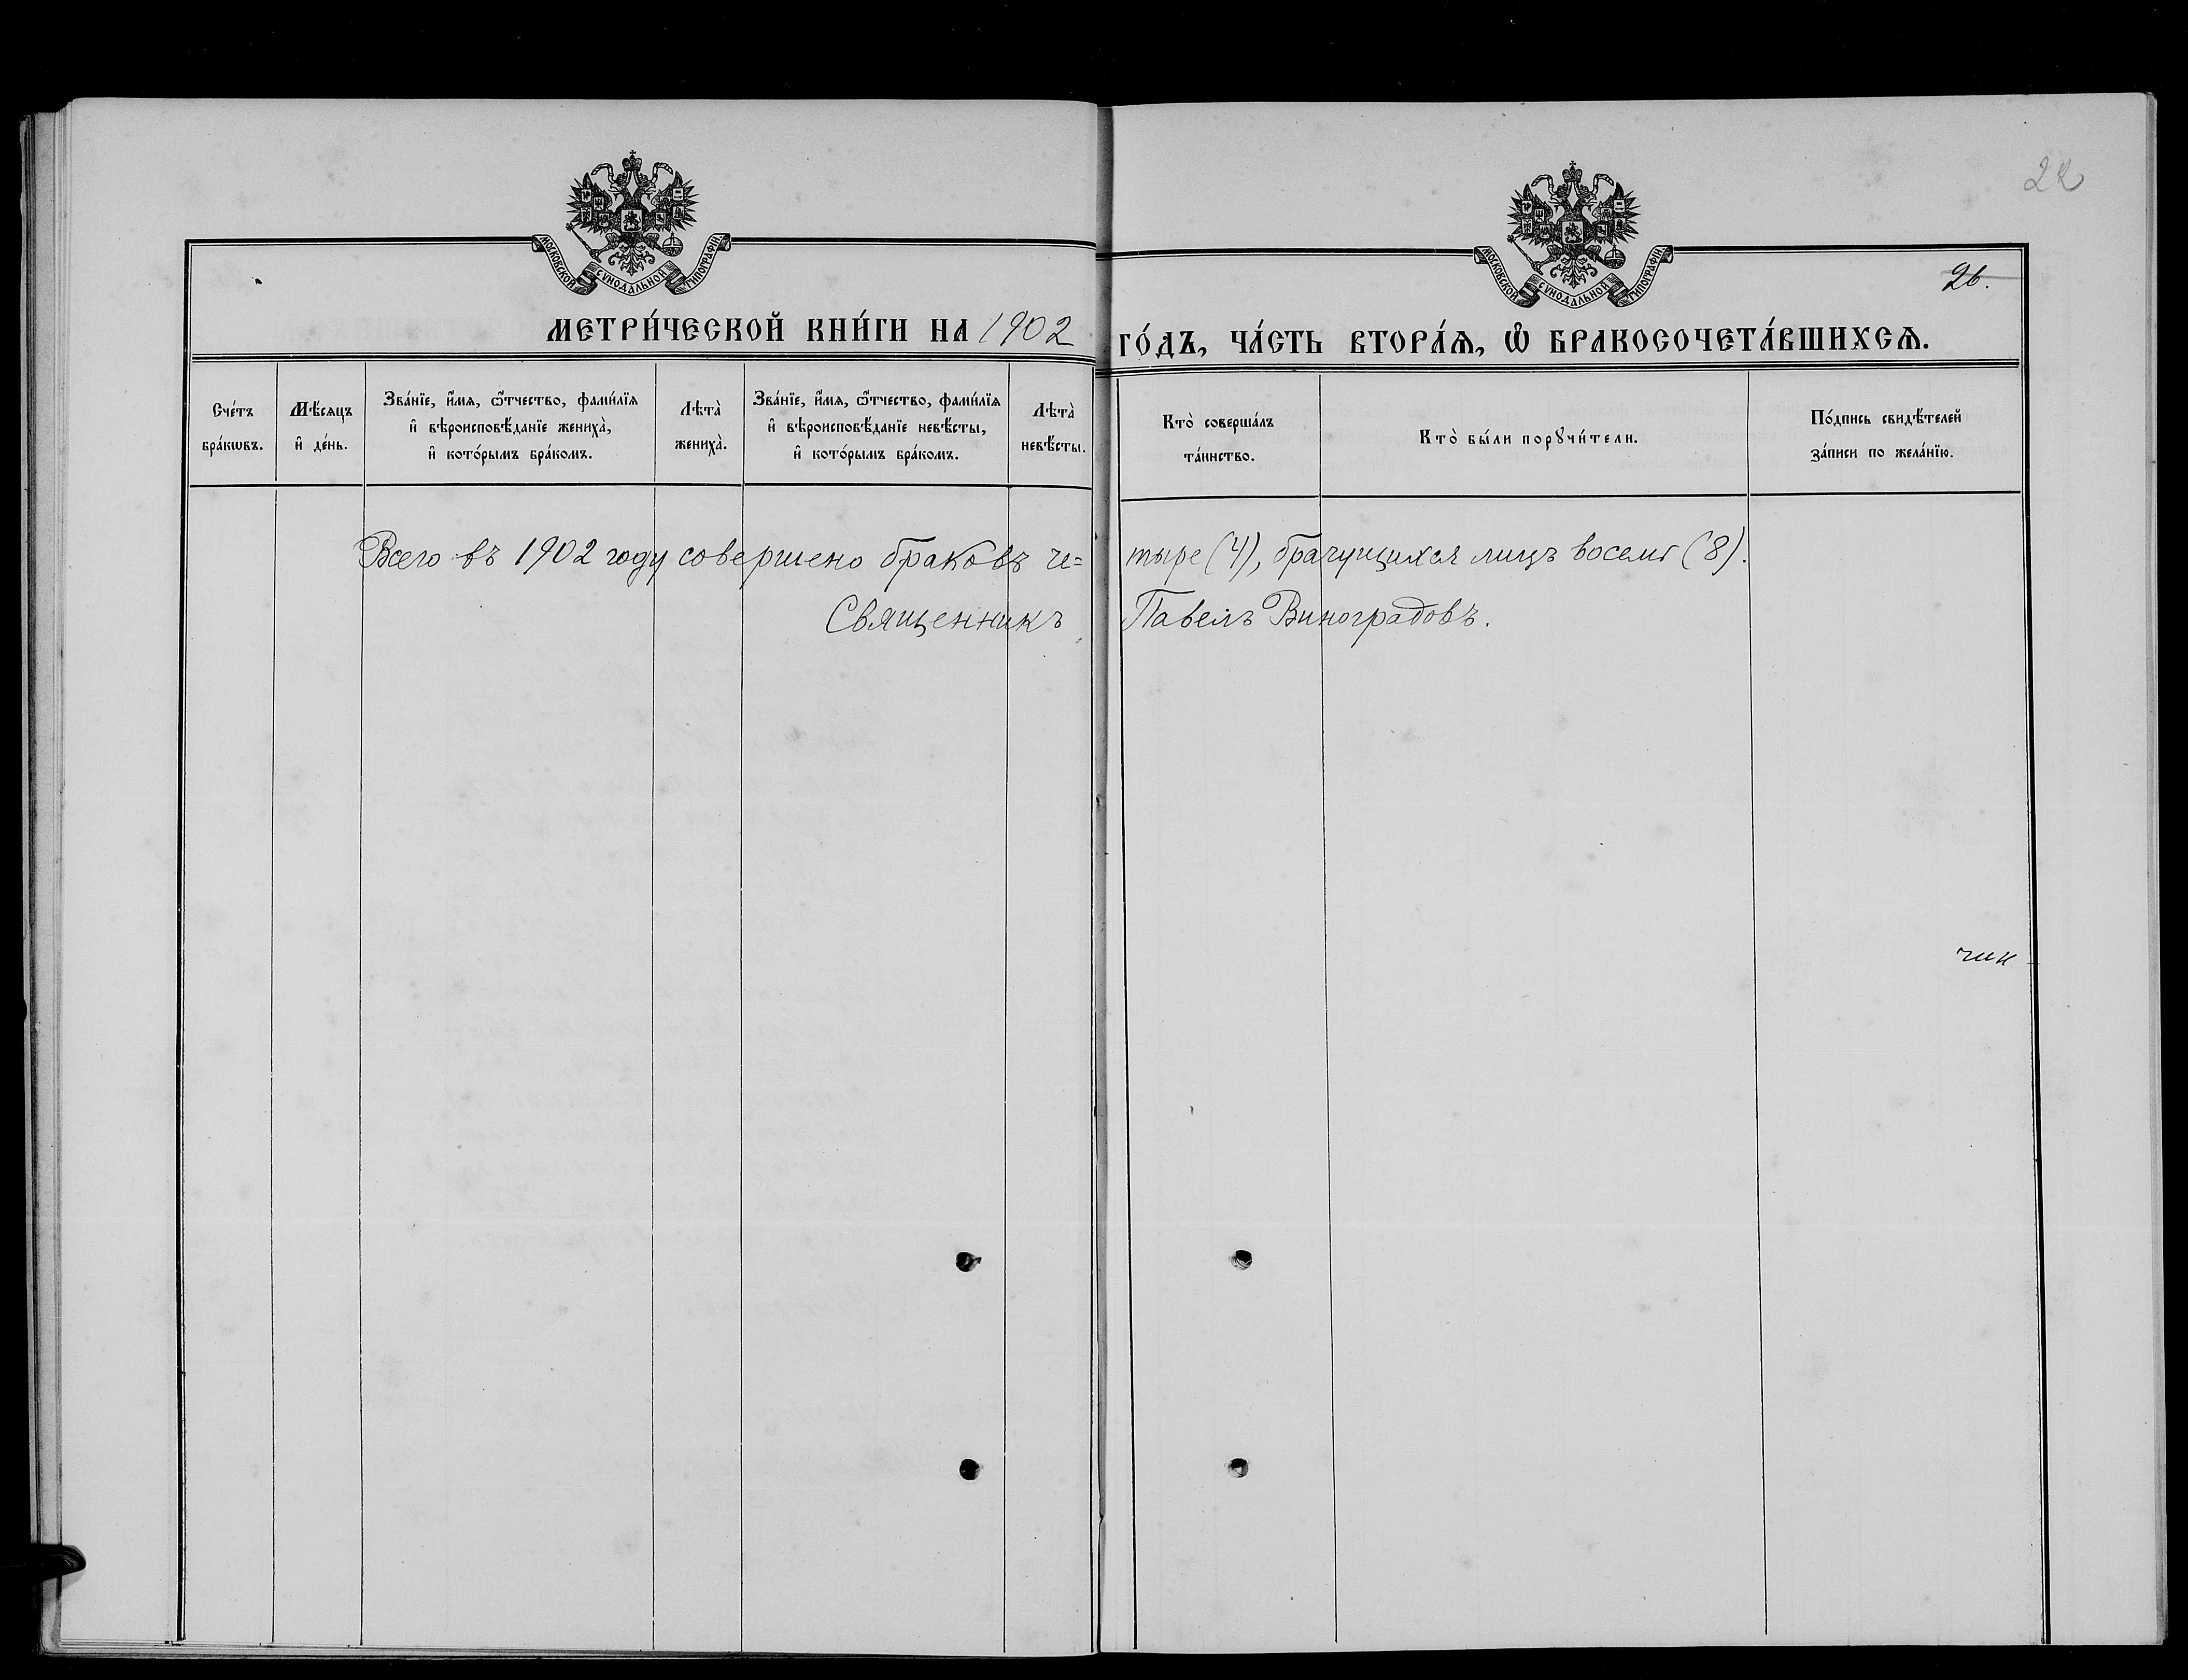 22
26.
МОСКОВСКОЙ СѴНОДАЛЬНОЙ ТИПОГРАФІИ.
МОСКОВСКОЙ СѴНОДАЛЬНОЙ ТИПОГРАФІИ.
МЕТРИ́ЧЕСКОЙ КНИ́ГИ НА 1902 ГО́ДЪ, ЧА́СТЬ ВТОРА́Ѧ, Ѽ БРАКОСОЧЕТА́ВШИХСѦ.
Сче́тъ
бра́кѡвъ.
Мѣ́сѧцъ
и҆ де́нь.
Зва́нїе, и҆́мѧ, ѻ҆́тчество, фами́лїѧ
и҆ вѣроисповѣ́данїе жениха̀,
и҆ кото́рымъ бра́комъ.
Лѣта̀
жениха̀.
Зва́нїе, и҆́мѧ, ѻ҆́тчество, фами́лїѧ
и҆ вѣроисповѣ́данїе невѣ́сты,
и҆ кото́рымъ бра́комъ.
Лѣта̀
невѣ́сты.
Кто̀ соверша́лъ
та́инство.
Кто̀ бы́ли порꙋчи́тели.
По́дпись свидѣ́телей
за́писи по жела́нїю.
Всего въ 1902 году совершено браковъ че= тыре (4), брачущихся лицъ восемь (8).
Священникъ Павелъ Виноградовъ.
чик